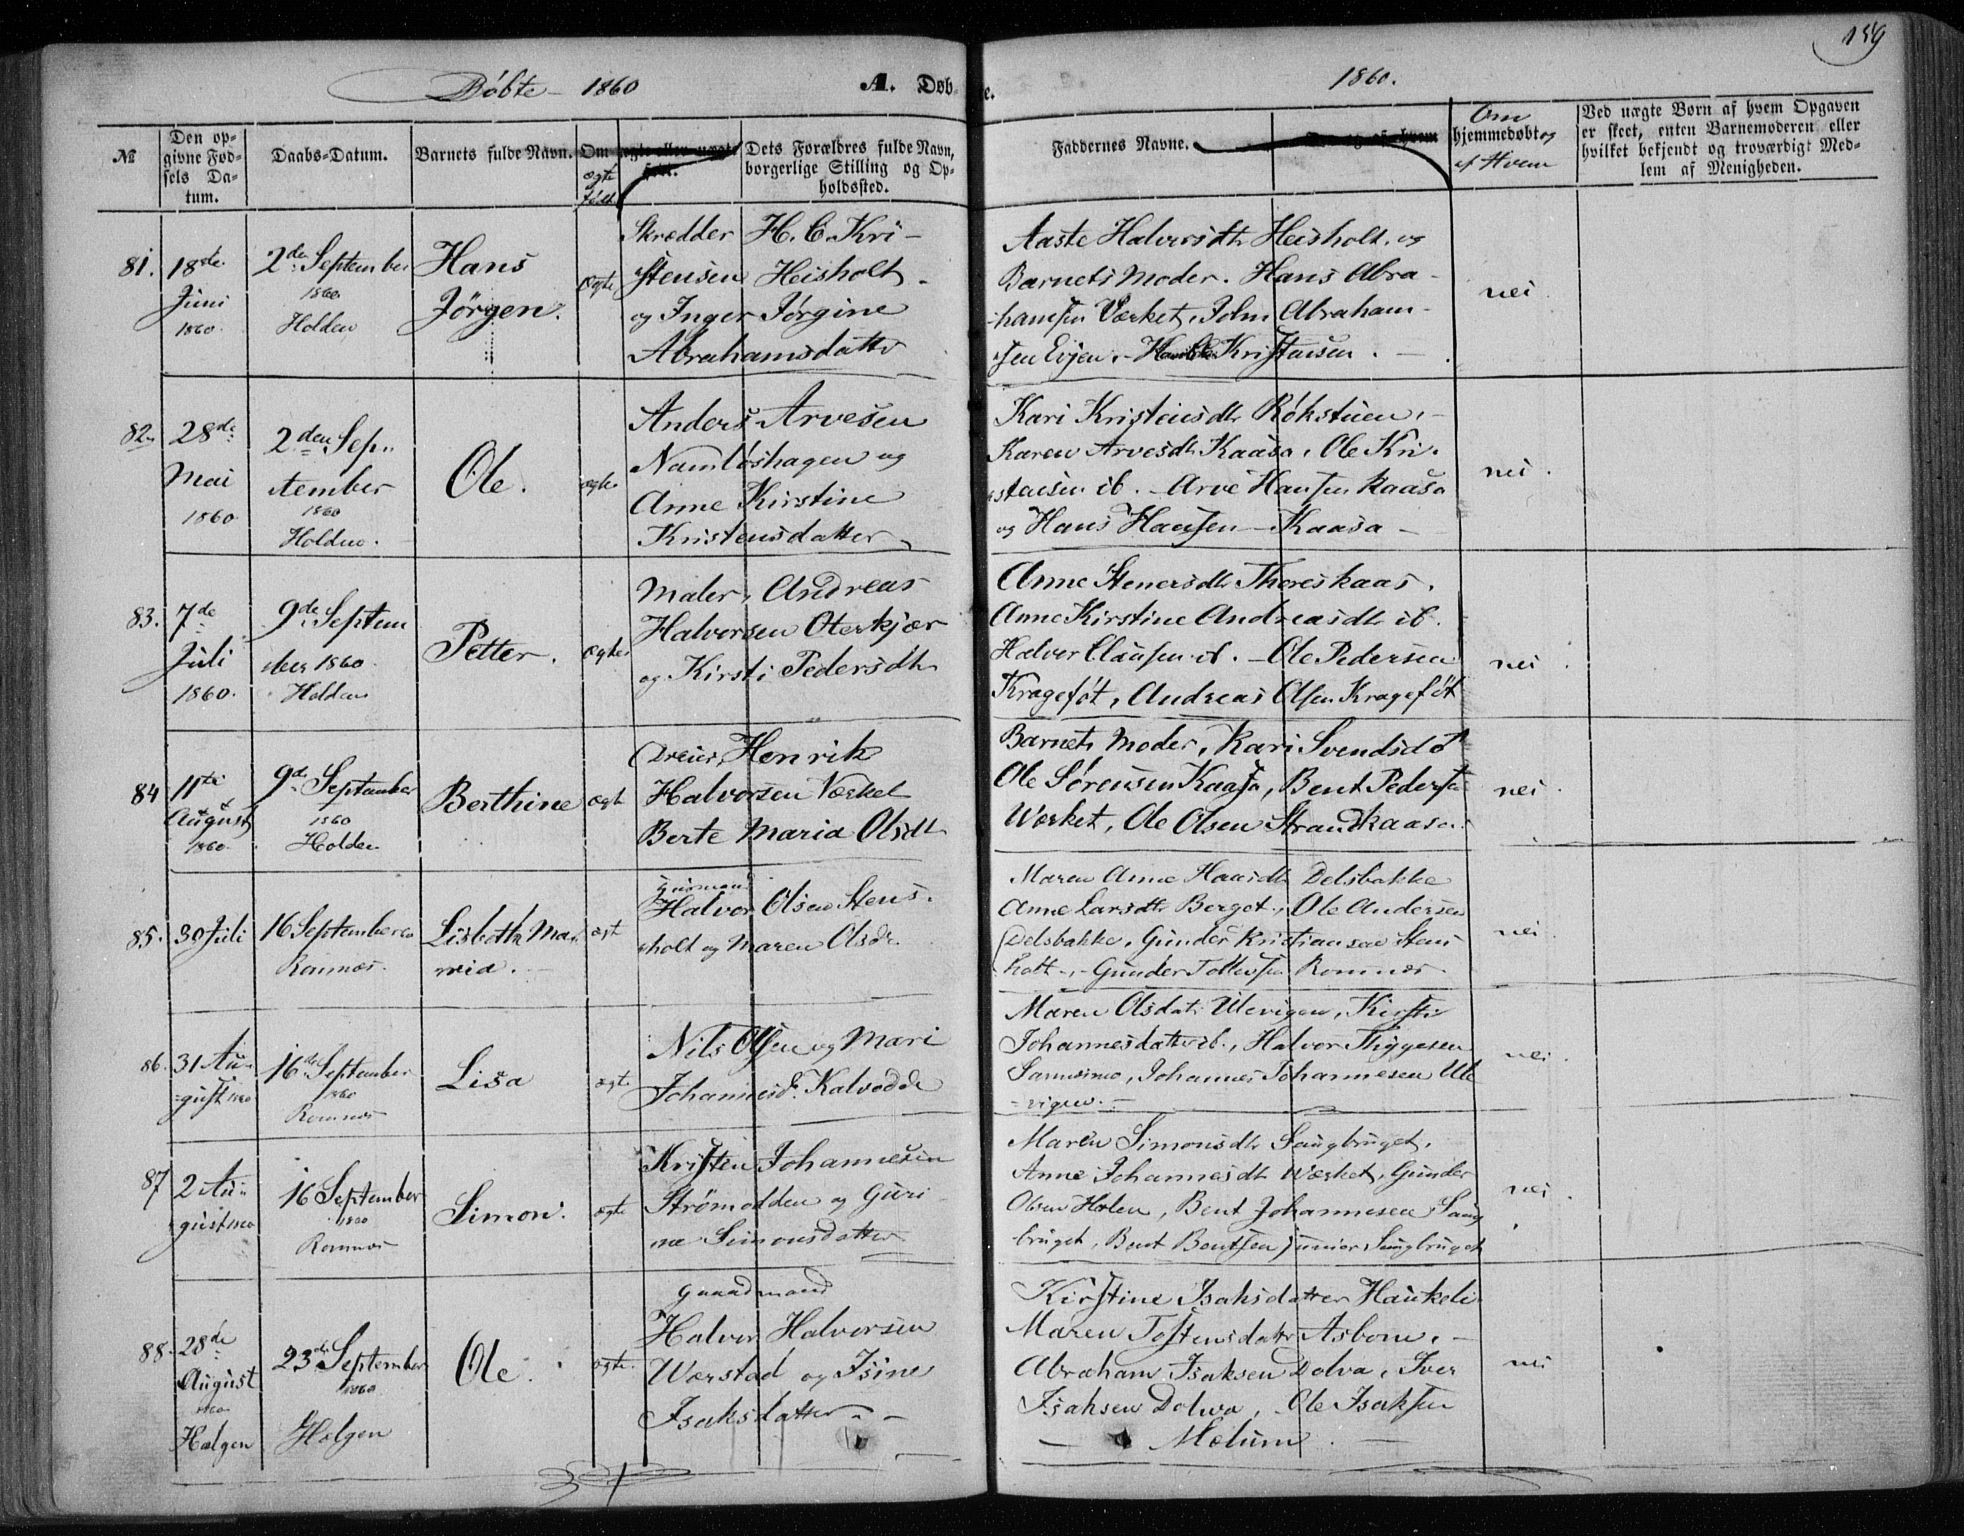 159
Døbte 1860 A. Døb-
e. 1860.
№
Den op-
givne Fød-
sels Da-
tum.
Daabs-Datum.
Barnets fulde Navn.
Om ægte eller uægte
født.
ægte
født
Dets Forældres fulde Navn,
borgerlige Stilling og Op-
holdssted.
Faddernes Navne.
Om
hjemmedøbt og
af Hvem
Ved uægte Børn af hvem Opgaven
er skeet, enten Barnemoderen eller
hvilket bekjendt og troværdigt Med-
lem af Menigheden.
81.
18de
Juni
1860.
2den September
1860
Holden
Hans
Jörgen.
ægte
Skrædder H. C. Kri-
stensen Heisholt
og Inger Jørgine
Abrahamsdatter
Aaste Halversdtr Heisholt, og
Barnets Moder. Hans Abra-
hamsen Værket, John Abraham-
sen Evjen, Kristensen.
nei
82.
28de
Mai
1860
2den Sep-
tember
1860
Holden.
Ole.
ægte
Anders Arvesen
Namløshagen og
Anne Kirstine
Kristensdatter
Kari Kristensdtr Røkstuen,
Karen Arvesdtr Kaasa, Ole Kri-
stensen ib. Arve Hansen Kaasa
og Hans Hansen Kaasa
nei.
83.
7de
Juli
1860.
9de Septem
ber 1860
Holden
Petter.
ægte
Maler, Andreas
Halversen Oterkjær
og Kirsti Pedersdtr
Anne Stenersdtr Thoreskaas,
Anne Kirstine Andreasdtr ib.
Halver Clausen ib. Ole Pedersen
Krageføt, Andreas Olsen Krageføt
nei
84
11te
August
1860
9de September
1860
Holden
Berthine
ægte
Dreier, Henrik
Halvorsen Værket
Berte Maria Olsdtr
Barnets Moder, Kari Svendsdtr
Ole Sørensen Kaasa, Bent Pedersen
Værket, Ole Olsen Strandkaasa.
nei.
85.
30 Juli
16 September
Romnæs.
Lisbeth Ma-
ria.
ægt
Halvor Olsen Stens-
holt og Maren Olsdr.
Maren Anne Hansdtr Delsbakke
Anne Larsdtr Berget, Ole Andersen
Delsbakke, Gunder Kristiansen Stens
holt, Gunder Tollevsen Romnæs
nei.
86.
31 Au-
gust 1860
16de September
1860
Romnæs
Lisa
ægte
Nils Olsen og Mari
Johannesd. Kalvodde
Maren Olsdat. Ulevigen, Kirsti
Johannesdatter ib., Halvor Thygesen
Johannes Johannesen Ule
vigen.
nei.
87
2 Au-
gust 1860
16 September
1860
Romnæs
Simon.
ægte
Kristen Johannesen
Strømodden og Guri-
ne Simonsdatter
Maren Simonsdtr Saugbruget,
Anne Johannesdtr Værket, Gunder
Olsen Holen, Bent Johannesen Saug
bruget, Bent Bentsen junior Saugbruget
nei.
88.
28de
August
1860
Hælgen
23de September
1860
Hælgen
Ole.
ægte.
Gaardmand
Halvor Halvorsen
Wærstad og Isine
Isaksdatter
Kirstine Isaksdatter Haukeli
Maren Tostensdatter Asbom,
Abraham Isaksen Dolva, Iver
Isaksen Dolva, Ole Isaksen
Mælum.
nei